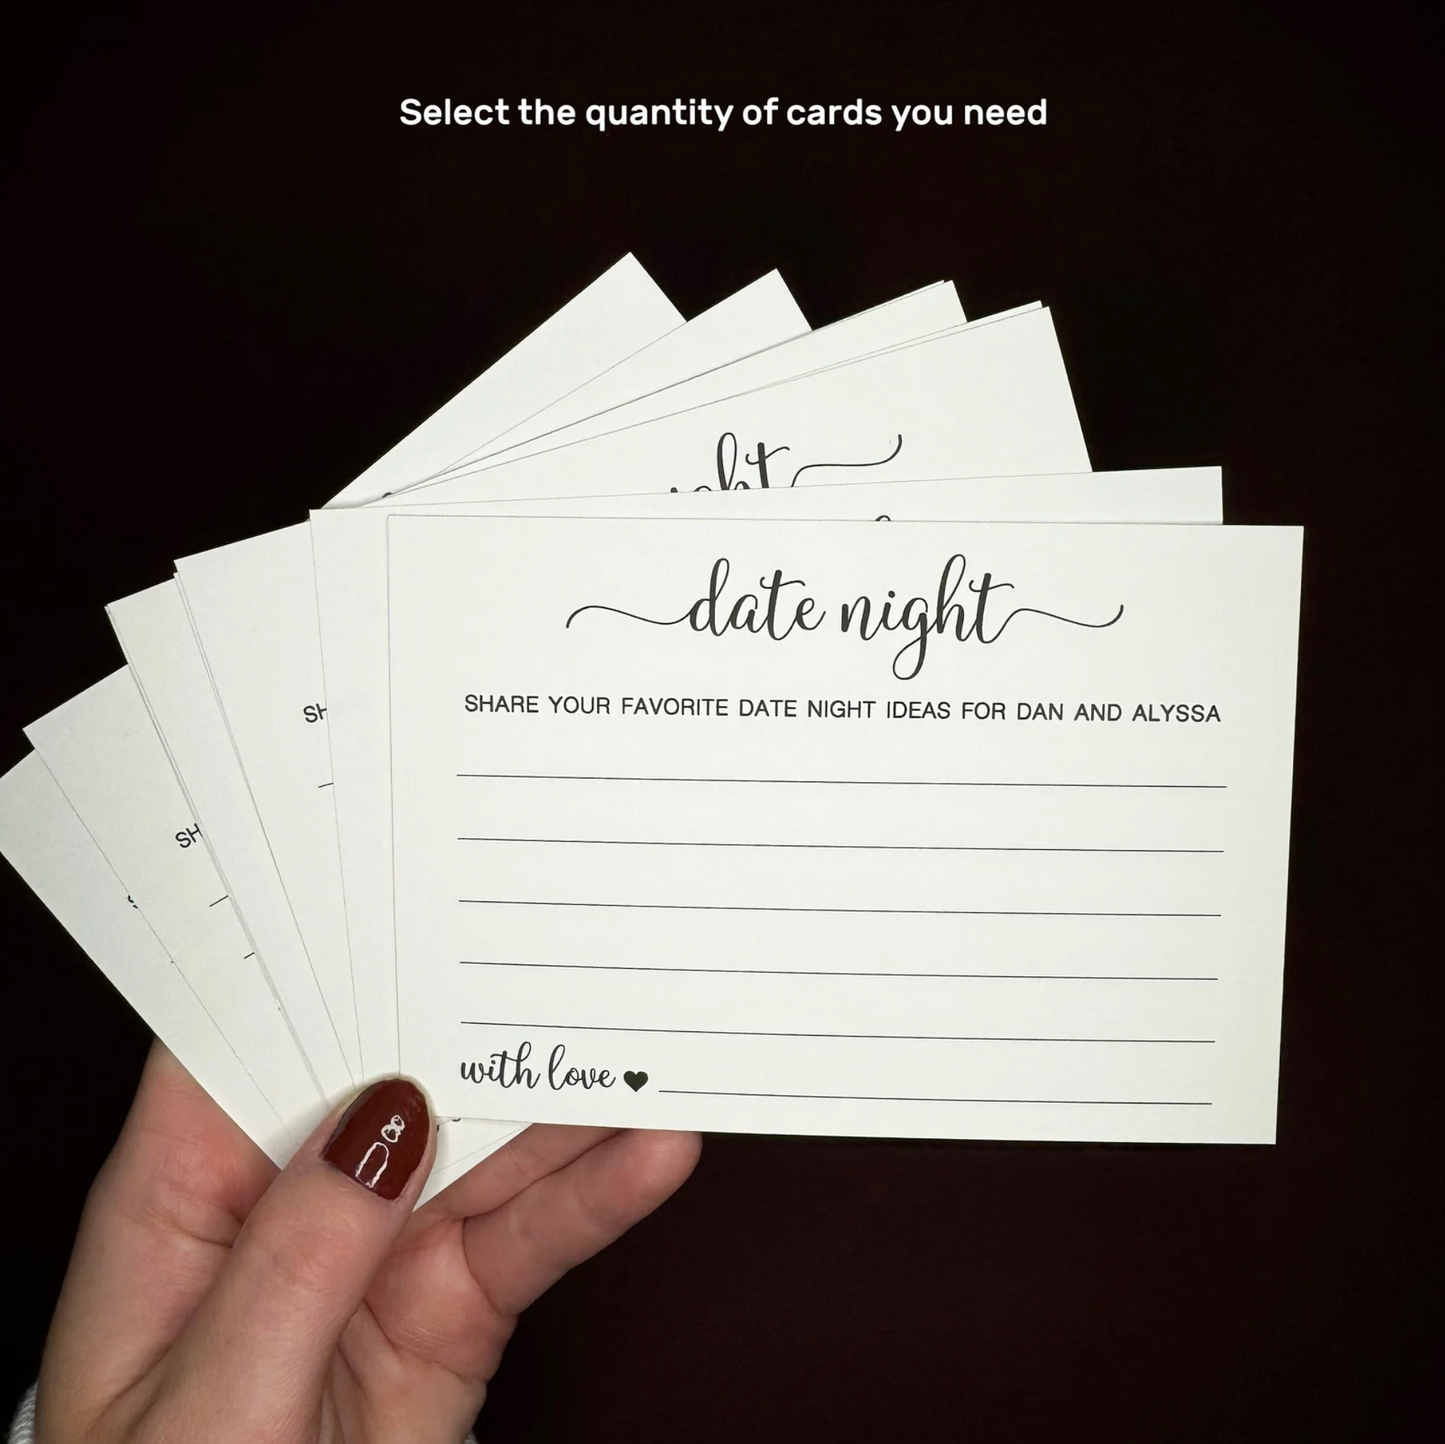 Select the quantity of cards you need
date night
SHARE YOUR FAVORITE DATE NIGHT IDEAS FOR DAN AND ALYSSA
with love